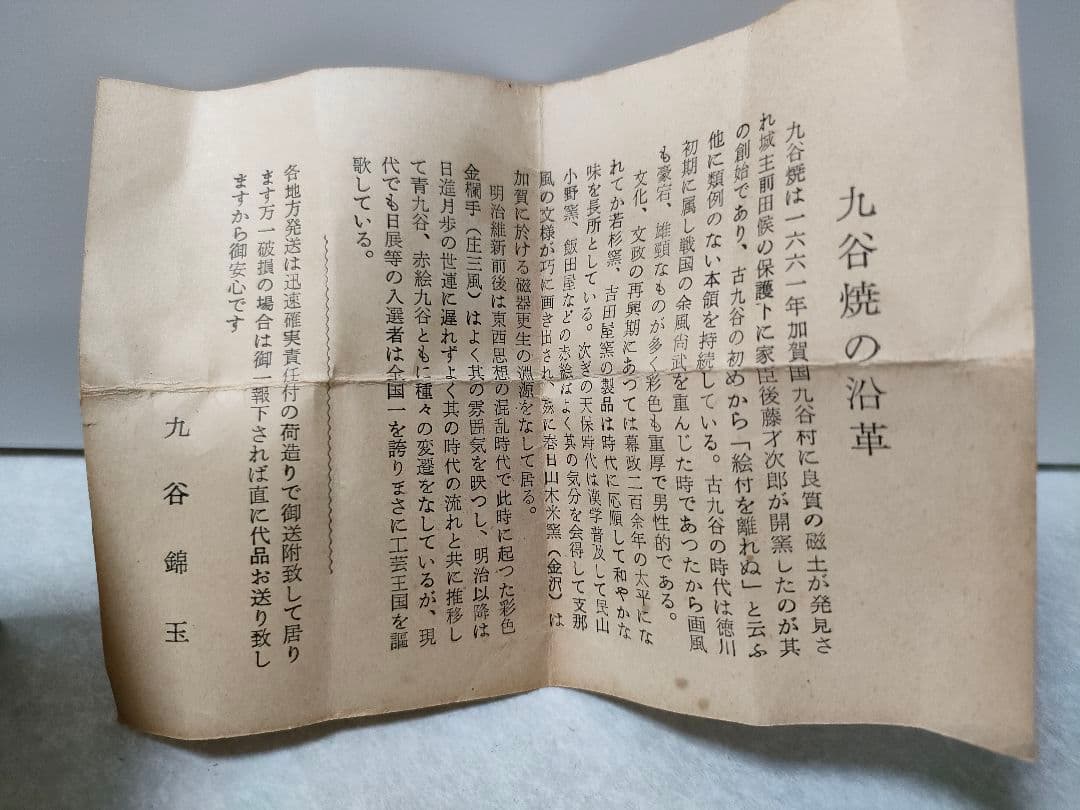 九谷焼の沿革
九谷焼は一六六一年加賀国九谷村に良質の磁土が発見さ
れ城主前田候の保護下に家臣後藤才次郎が開窯したのが其
の創始であり、古九谷の初めから「絵付を離れぬ」と云ふ
他に類例のない本領を持続している。古九谷の時代は徳川
初期に属し戦国の余風尚武を重んじた時であつたから画風
も豪宕、雄頸なものが多く彩色も重厚で男性的である。
文化、文政の再興期にあつては幕政二百余年の太平にな
れてか若杉窯、吉田屋窯の製品は時代に応順して和やかな
味を長所としている。次ぎの天保時代は漢学普及して民山
小野窯、飯田屋などの赤絵はよく其の気分を会得して支那
風の文様が巧に画き出され、殊に春日山木米窯（金沢）は
加賀に於ける磁器更生の淵源をなして居る。
明治維新前後は東西思想の混乱時代で此時に起つた彩色
金欄手（庄三風）はよく其の雰囲気を映つし、明治以降は
日進月歩の世運に遅れずよく其の時代の流れと共に推移し
て青九谷、赤絵九谷ともに種々の変遷をなしているが、現
代でも日展等の入選者は全国一を誇りまさに工芸王国を謳
歌している。
各地方発送は迅速確実責任付の荷造りで御送附致して居り
ます万一破損の場合は御一報下されば直に代品お送り致し
ますから御安心です
九谷錦玉